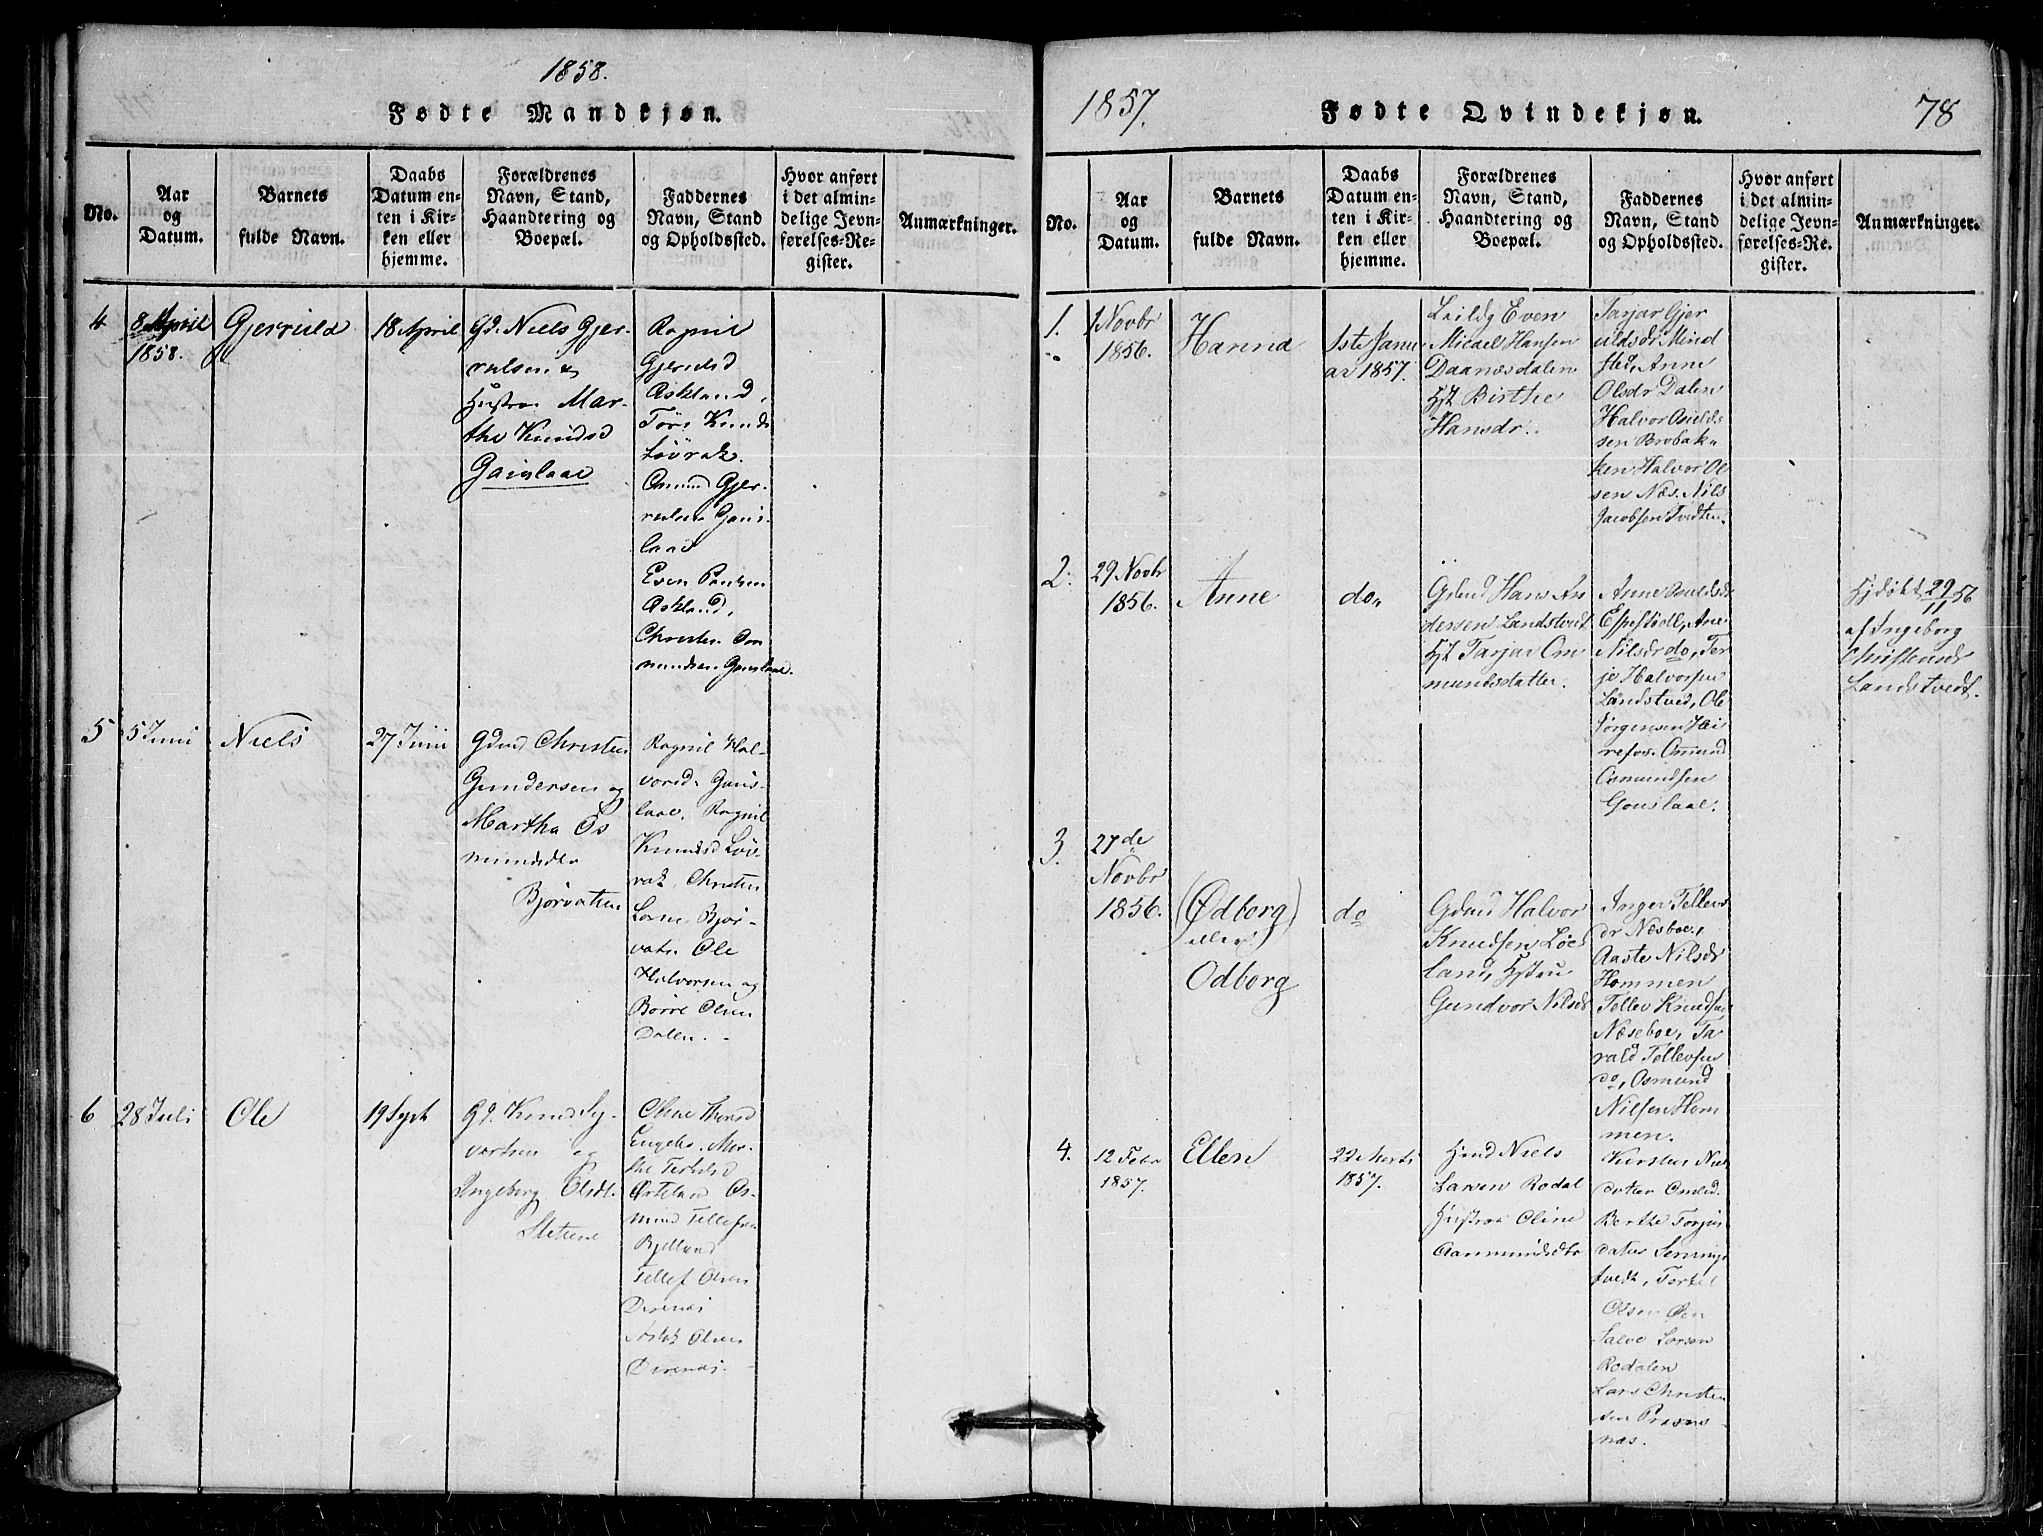 1858.
Fødte Mandkjøn.
No.
Aar
og
Datum.
Barnets
fulde Navn.
Daabs
Datum en-
ten i Kir-
ken eller
hjemme.
Forældrenes
Navn, Stand,
Haandtering og
Boepæl.
Faddernes
Navn, Stand
og Opholdssted.
Hvor anført
i det almin-
delige Jevn-
førelses-Re-
gister.
Anmærkninger.
4
8 April
1858.
Gjeruld
18 April
Gd. Niels Gjer-
ulsen &
Hustru Mar-
the Knudsd
Gauslaae
Ragnil
Gjerulsd
Askland,
Tore Knuds
Løvrak.
Omund Gjer-
rulsen Gaus-
laae
Even Paulsen
Askland,
Christen Om-
mundsen Gauslaae.
5
5 Juni
Niels
27 Juni
Gdmd Christen
Gundersen og
Martha Os
mundsdtr
Bjorvatten
Ragnil Hal-
vorsd. Gaus-
laae. Ragnil
Knudsd Løv-
rak, Christen
Larsen Bjor-
vatn Ole
Halvorsen og
Børre Olsen
Dalen.
6
28 Juli
Ole
19 Sept
Gd. Knud Sy-
vertsen og
Ingeborg Olsdt.
Thorsd
Engebo. Mar-
the Terkelsd
Os-
mund Tellefsen
Bjelland
Tellef Olsen
Direnæs
Aslak Olsen
Direnæs.
1857.
Fødte Qvindekjøn.
78
No.
Aar
og
Datum.
Barnets
fulde Navn.
Daabs
Datum en-
ten i Kir-
ken eller
hjemme.
Forældrenes
Navn, Stand,
Haandtering og
Boepæl.
Faddernes
Navn, Stand
og Opholdssted.
Hvor anført
i det almin-
delige Jevn-
førelses-Re-
gister.
Anmærkninger.
1.
1 Novbr
1856.
Hanna
1ste Janu
ar 1857.
Leildg Even
Micael Hansen
Daanæsdalen
Hst Birthe
Hansdr.
Tarjar Gjer
uldsdr Mind
sted, Anne
Olsdr Dalen
Halvor Osulds
sen Brobak-
ken Halvor Ol
sen Næs. Nils
Jacobsen Tvedten.
2.
29 Novbr
1856.
Anne
do.
Gdmd Hans An
dersen Landstvedt
Hst Tarjar Om
mundsdatter.
Anne Osuldsdr
Espestøel, Ane
Nilsdr do, Ter
je Halvorsen
Landstved, Ole
Jørgensen Hei
refos. Omund
Osmundsen
Gouslaae.
Hjdøbt 29/11 56
af Ingeborg
Christensdr
Landstvedt.
3.
27de
Novbr
1856.
(Ødborg)
eller
Odborg
do
Gdmd Halvor
Knudsen Løv
land, Hstru
Gundvor Nilsdr
Inger Tellevs
dr Næsboe,
Aaste Nilsdr
Hommen
Tellev Knudsen
Næseboe, Ta
rald Tellevsen
do, Osmund
Nilsen Hom
men.
4.
12 Febr
1857.
Ellen
22 Marts
1857.
Hmd Niels
Larsen Rodal
Hustru Oline
Aanmundsdtr
Kirsten Niels
datter Omlid.
Berthe Torjus
datter Senning
tvedt, Terkel
Olsen Øen
Salve Larsen
Rodalen
Lars Christen
sen Præsts-
næs.